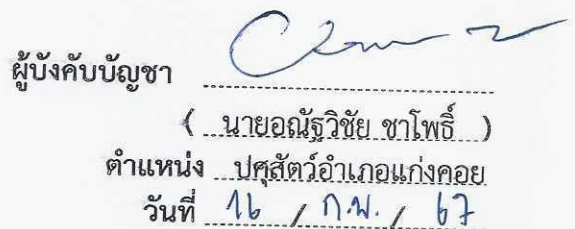 ผู้บังคับบัญชา
( นายอณัฐวิชัย ชาโพธิ์ )
ตำแหน่ง ปศุสัตว์อำเภอแก่งคอย
วันที่ 16 / ก.พ. / 67